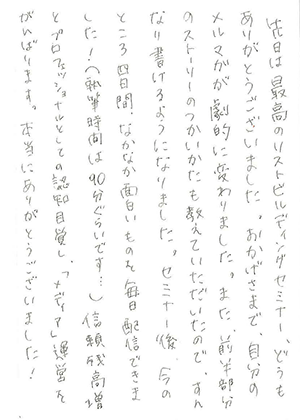 先日は最高のリストビルディングセミナー、どうも
ありがとうございました。おかげさまで、自分の
メルマガが劇的に変わりました。また、前半部分
のストーリーのつかいかたも教えていただいたので、すん
なり書けるようになりました。セミナー後、今の
ところ四日間、なかなか面白いものを毎日配信できま
した!(執筆時間は90分ぐらいです…)信頼残高増
とプロフェッショナルとしての認知目覚し、「メディア」運営を
がんばります。本当にありがとうございました!